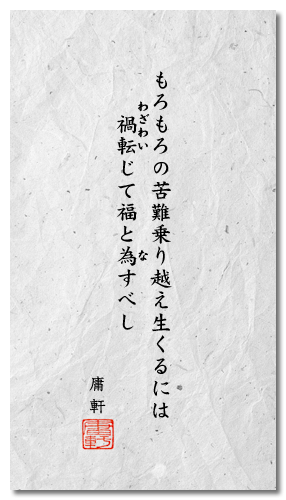 もろもろの苦難乗り越え生くるには
わざわい
禍転じて福と為すべし
な
庸軒
庸軒